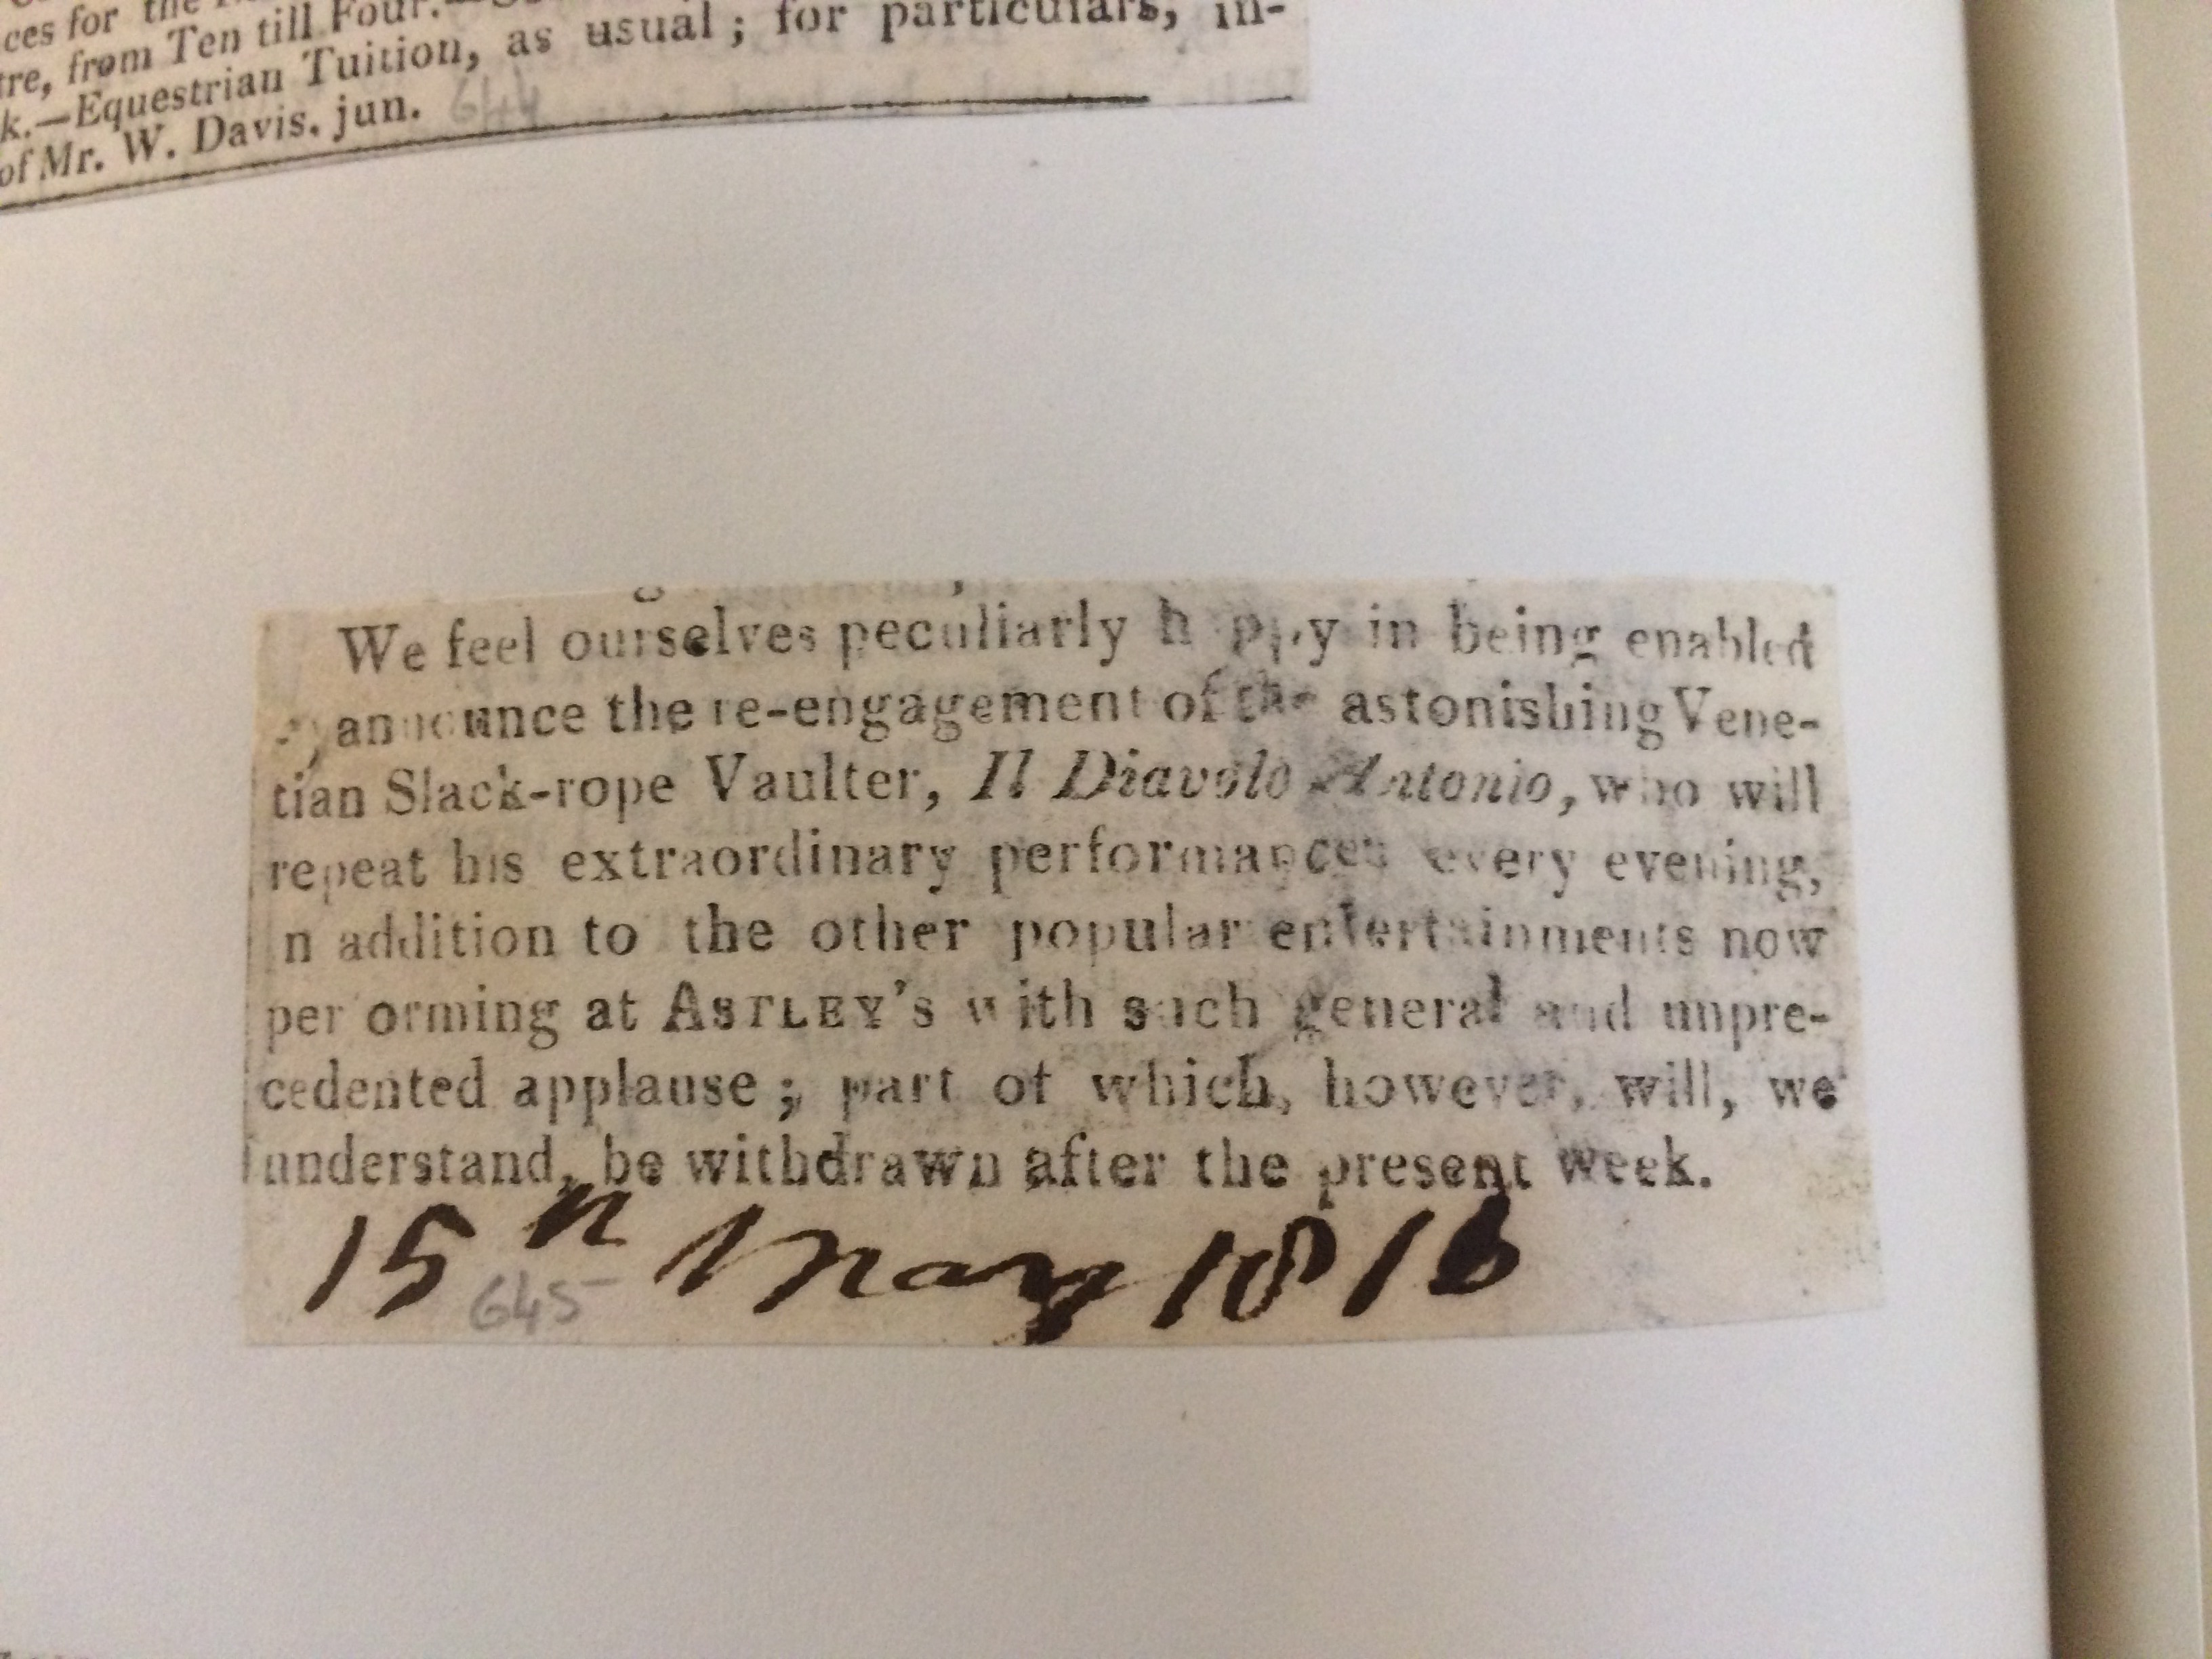 ces for the
tre, from Ten till Four.—
k.—Equestrian Tuition, as usual; for particulars, in-
of Mr. W. Davis, jun.
644
We feel ourselves peculiarly h ppy in being enabled
announce the re-engagement of the astonishing Vene-
tian Slack-rope Vaulter, Il Diavolo Antonio, who will
repeat his extraordinary performances every evening,
n addition to the other popular entertainments now
per orming at ASTLEY's with such general and unpre-
cedented applause; part of which, however, will, we
understand, be withdrawn after the present week.
15th May 1816
645